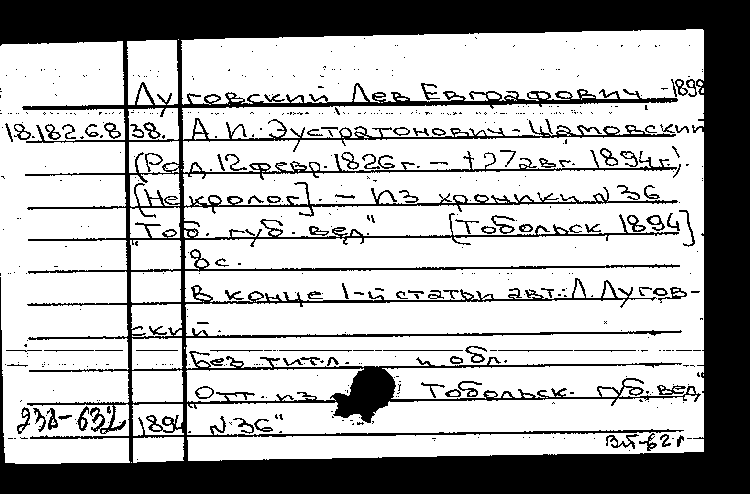 Луговский, Лев Евграфович, -1898
18.182.6.8 38. А. И. Эустратонович-Шамовский
(Род. 12 февр. 1826 г. – †27 авг. 1894 г.).
[Некролог]. – Из хроники N 36
"Тоб. губ. вед." [Тобольск, 1894].
8 с.
В конце 1-й статьи авт.: Л. Лугов-
ский.
Без титл. и обл.
"Отт. из Тобольск. губ. вед."
1894 N 36."